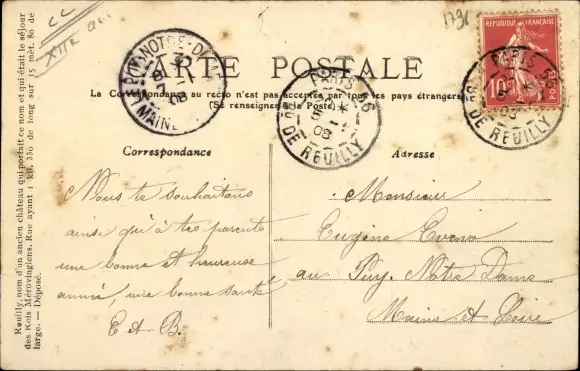 CC
XIIe arr.
1796
RÉPUBLIQUE FRANÇAISE
10c
POSTES
CARTE POSTALE
La Correspondance au recto n'est pas acceptée par tous les pays étrangers
(Se renseigner à la Poste)
PUY-NOTRE-DAME
MAINE
PARIS 56
Bd DE REUILLY
PARIS 56
Bd DE REUILLY
Correspondance
Adresse
Nous te souhaitons
ainsi qu'à tes parents
une bonne et heureuse
année, une bonne santé
E et B.
Monsieur
Eugène
au Puy Notre Dame
Maine et Loire
Reuilly, nom d'un ancien château qui portait ce nom et qui était le séjour
des Rois Mérovingiens. Rue ayant 1 kil. 330 de long sur 15 mèt. 86 de
large. — Déposé.